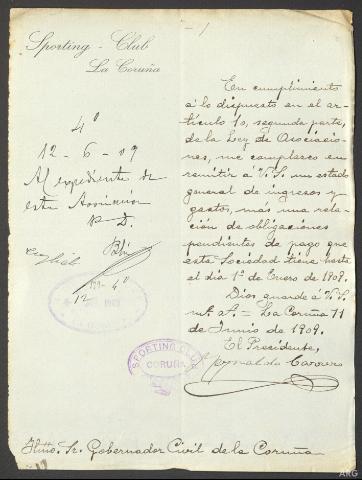 Sporting - Club
La Coruña
- 1
En cumplimiento
á lo dispuesto en el ar-
tículo 10, segunda parte,
de la Ley de Asociacio-
nes, me complazco en
remitir á V. S. un estado
general de ingresos y
gastos, más una rela-
ción de obligaciones
pendientes de pago que
esta Sociedad tiene hasta
el día 1º de Enero de 1909.
Dios guarde á V. S.
m.s a.s = La Coruña 11
de Junio de 1909.
El Presidente,
4º
12 - 6 - 09
Al expediente de
esta Asociación
P. D.
12
4º
1909
SPORTING CLUB
CORUÑA
Iltmo. Sr. Gobernador Civil de la Coruña
ARG